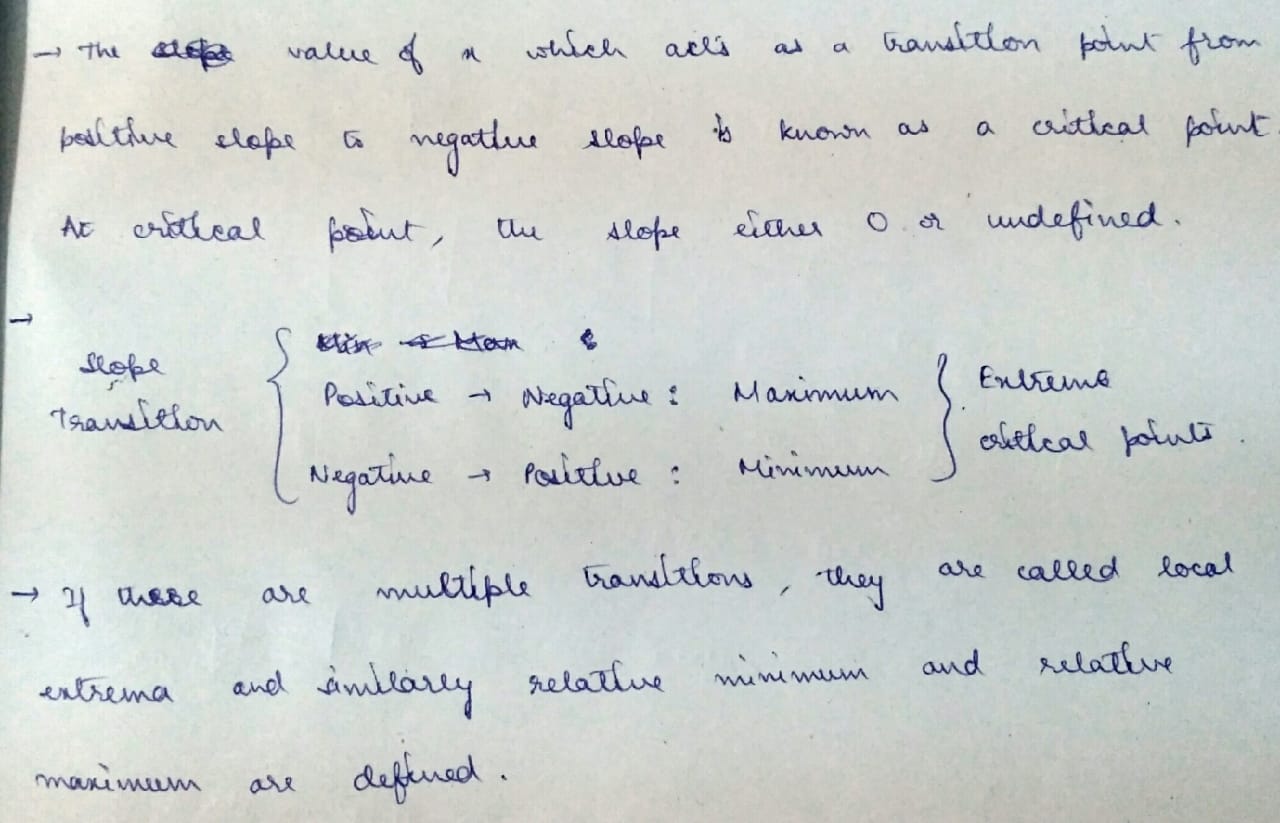 → The value of x which acts as a transition point from
positive slope to negative slope is known as a critical point.
At critical point, the slope either 0 or undefined.
→
Slope Transition { Positive → Negative : Maximum } Extreme critical points.
Negative → Positive : Minimum
→ If there are multiple transitions, they are called local
extrema and similarly relative minimum and relative
maximum are defined.